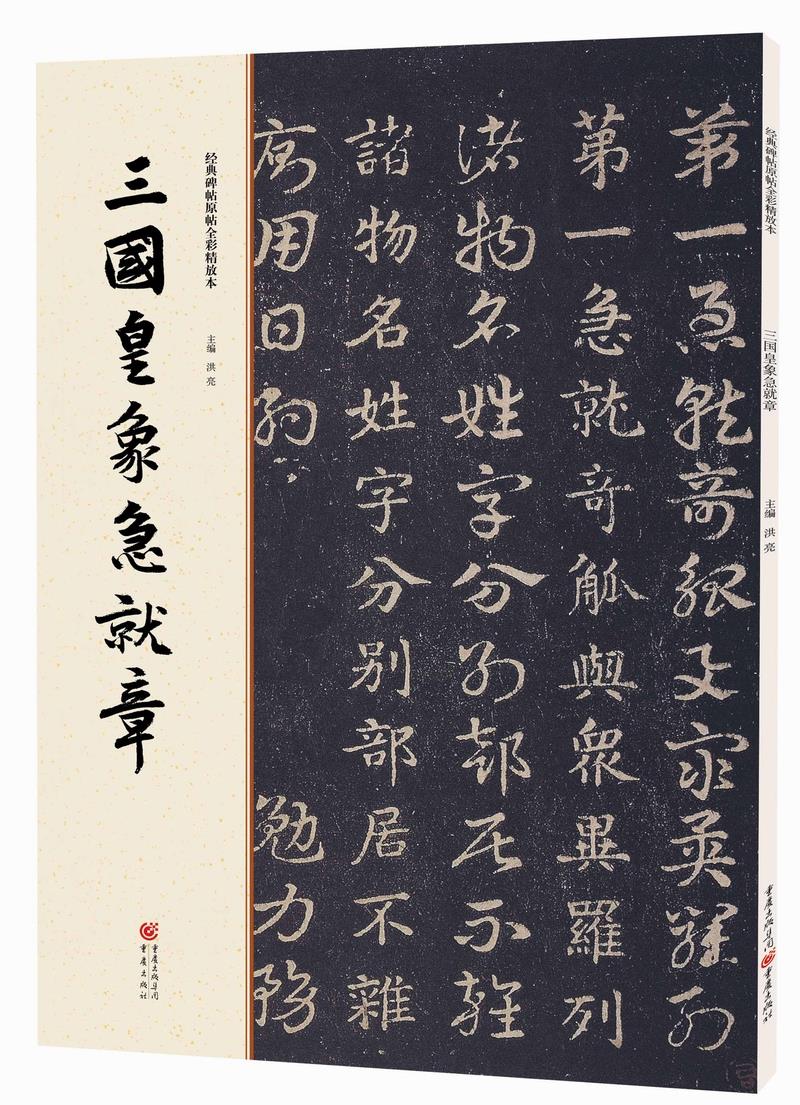 三國皇象急就章
经典碑帖原帖全彩精放本
主编 洪亮
重慶出版集团
重慶出版社
第一急就奇觚與衆異羅列
第一急就奇觚與眾異羅列
諸物名姓字分別部居不雜
諸物名姓字分別部居不雜
廁用日約
勉力務
经典碑帖原帖全彩精放本
三国皇象急就章
主编 洪亮
重慶出版集团
重慶出版社